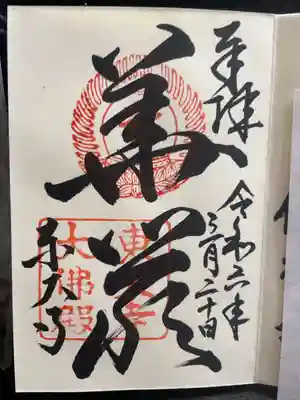 奉拝
令和六年
三月二十日
華厳
東大寺
東大寺
大佛殿